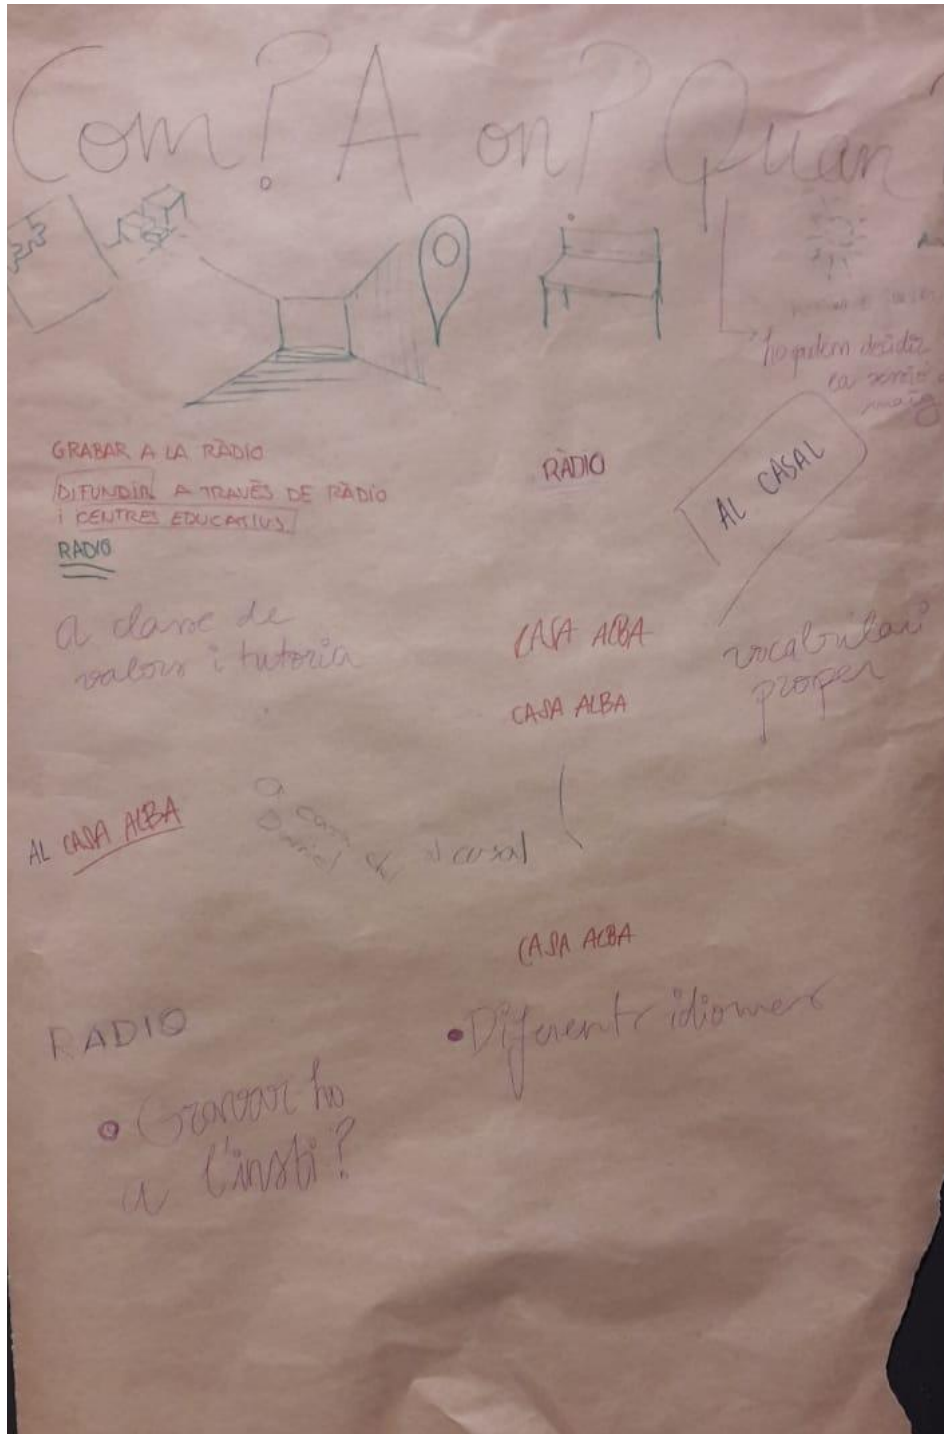 Com? A on? Quan
ho podem decidir
GRABAR A LA RÀDIO
DIFUNDIR A TRAVÉS DE RÀDIO
i CENTRES EDUCATIUS
RADIO
RÀDIO
AL CASAL
a classe de
valors i tutoria
CASA ALBA
CASA ALBA
vocabulari
proper
AL CASA ALBA
al casal
CASA ALBA
RADIO
• Diferents idiomes
• Gravar ho
a l'insti?